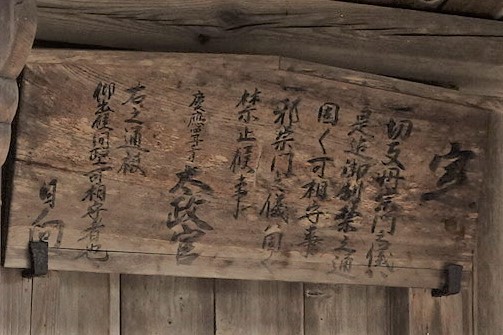 定
一切支丹宗門之儀ハ
是迄御制禁之通
固く可相守事
一邪宗門之儀ハ固く
禁止候事
慶應四年三月 太政官
右之通被
仰出候間堅可相守者也
日向